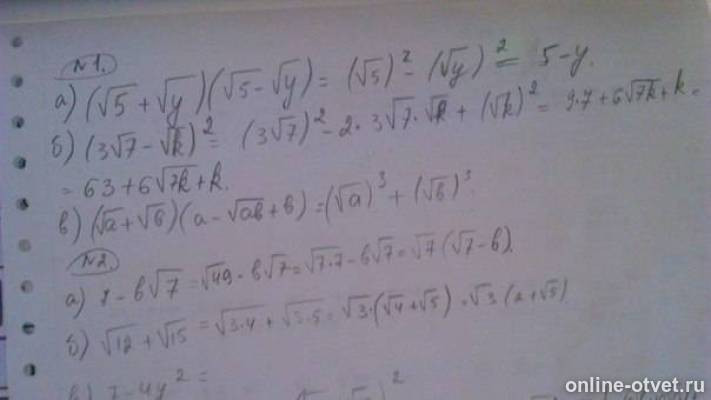 №1.
а) (√5 + √y)(√5 - √y) = (√5)² - (√y)² = 5 - y.
б) (3√7 - √k)² = (3√7)² - 2·3√7·√k + (√k)² = 9·7 + 6√7k + k =
= 63 + 6√7k + k.
в) (√a + √b)(a - √ab + b) = (√a)³ + (√b)³.
№2.
а) 7 - b√7 = √49 - b√7 = √7·7 - b√7 = √7(√7 - b).
б) √12 + √15 = √3·4 + √3·5 = √3·(√4 + √5) = √3(2 + √5)
в) 7 - 4y² =
online-otvet.ru